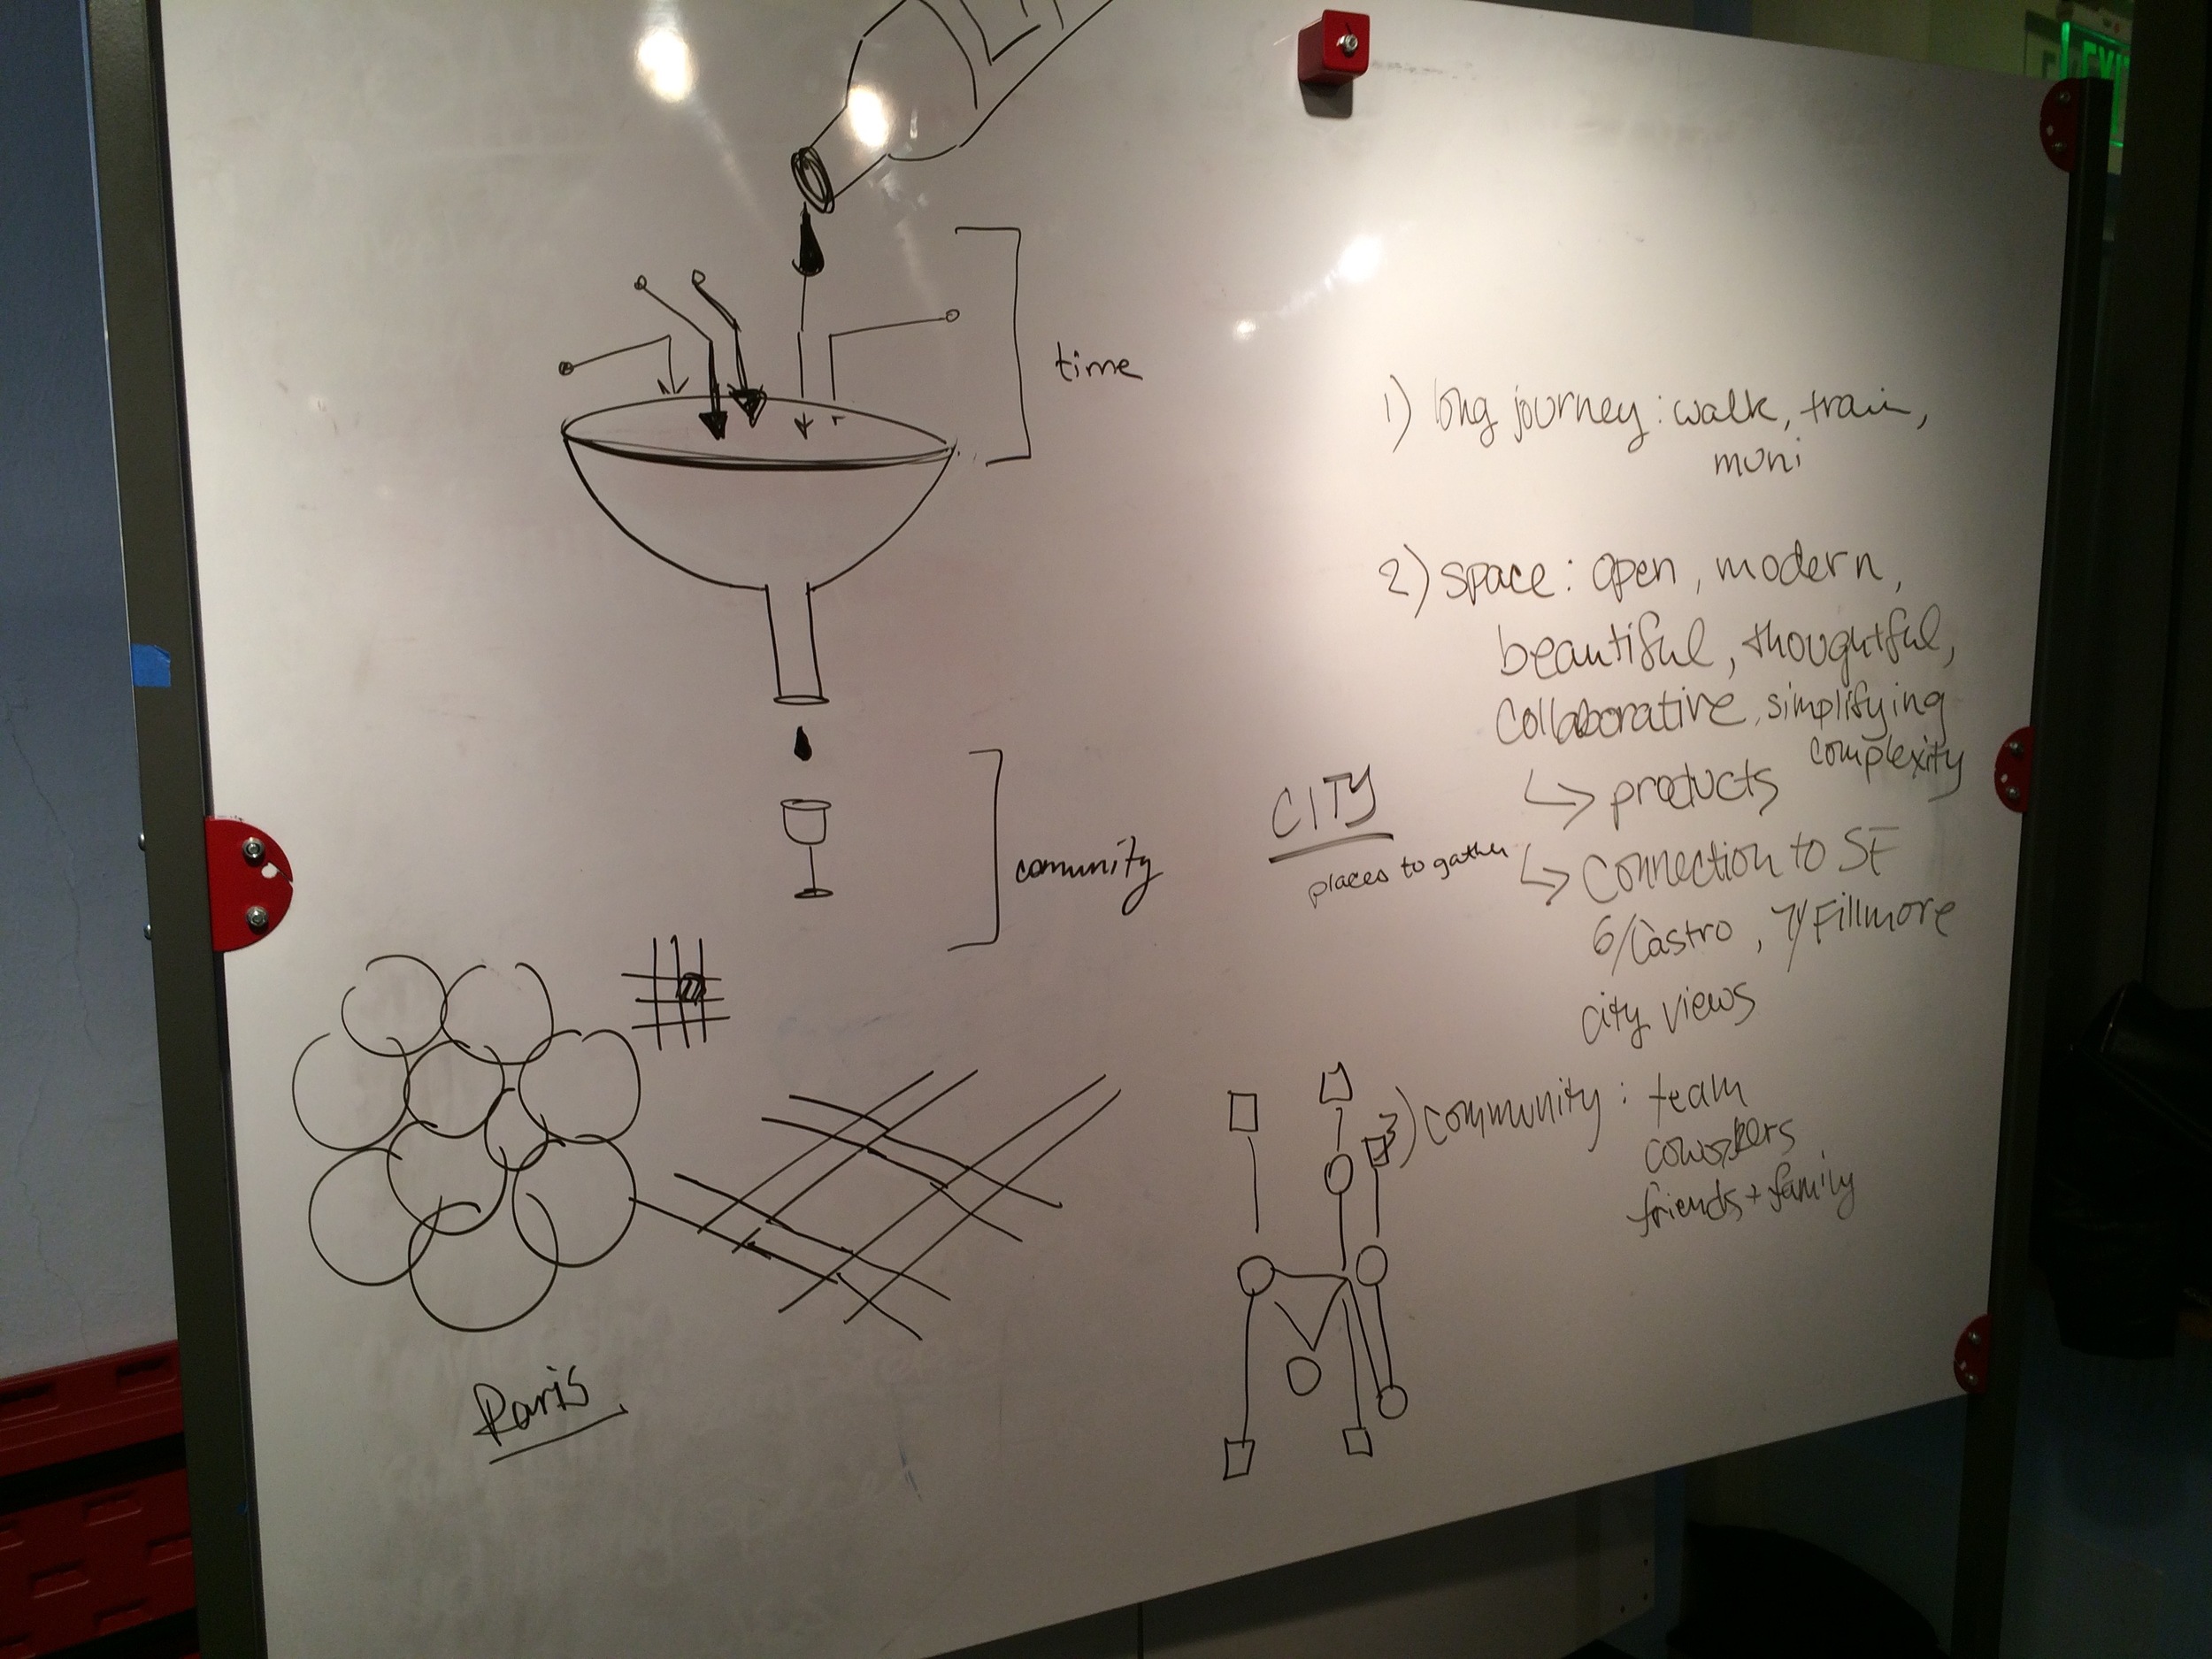 time
comunity
Paris
1) long journey: walk, train,
muni
2) space: open, modern,
beautiful, thoughtful,
collaborative, simplifying
complexity
↳ products
CITY
places to gather
↳ Connection to SF
6/Castro, 7/Fillmore
city views
3) community: team
coworkers
friends + family
EXIT